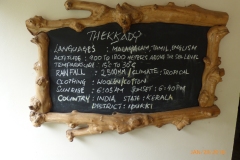 THEKKADY
LANGUAGES : MALAYALAM, TAMIL, ENGLISH
ALTITUDE : 900 TO 1800 METERS ABOVE THE SEA LEVEL
TEMPERATURE : 15°C TO 30°C
RAIN FALL : 2500MM / CLIMATE : TROPICAL
CLOTHING : WOOLEN/COTTON
SUNRISE : 6:05AM SUNSET : 6:40PM
COUNTRY : INDIA, STATE : KERALA
DISTRICT : IDUKKI